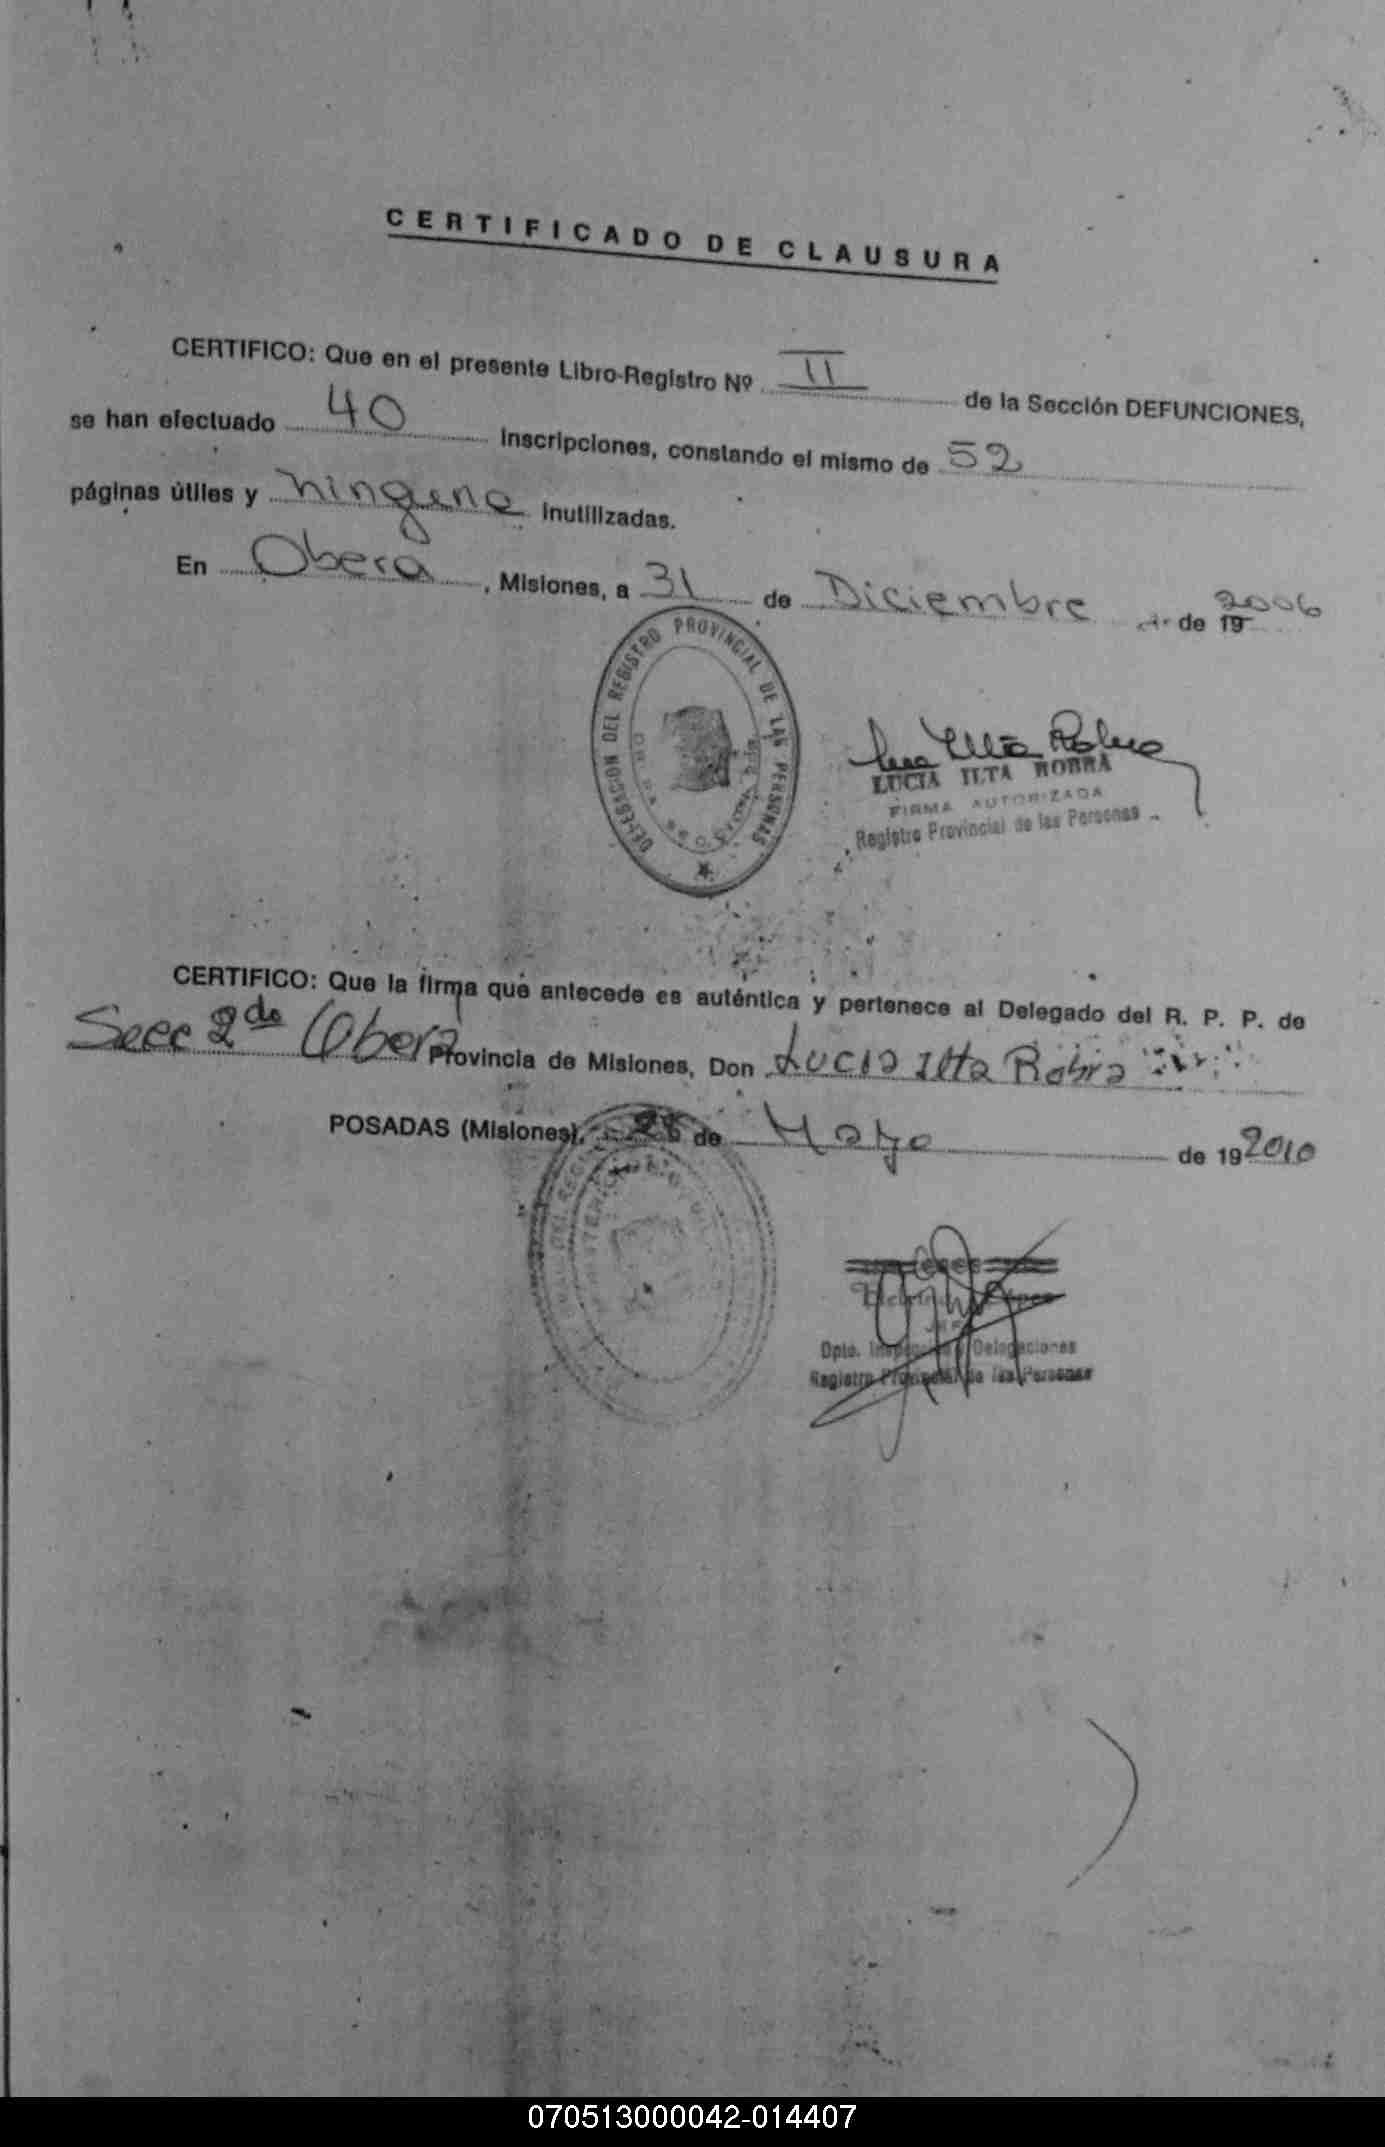 CERTIFICADO DE CLAUSURA
CERTIFICO: Que en el presente Libro-Registro Nº II de la Sección DEFUNCIONES,
se han efectuado 40 Inscripciones, constando el mismo de 52
páginas útiles y ninguna inutilizadas.
En Oberá, Misiones, a 31 de Diciembre de 19 2006
DELEGACION DEL REGISTRO PROVINCIAL DE LAS PERSONAS
LUCIA ILTA ROBRA
FIRMA AUTORIZADA
Registro Provincial de las Personas
CERTIFICO: Que la firma que antecede es auténtica y pertenece al Delegado del R. P. P. de
Secc 2da Oberá Provincia de Misiones, Don Lucia Ilta Robra
POSADAS (Misiones), de Mayo de 19 2010
Dpto. Delegaciones
Registro Provincial de las Personas
070513000042-014407